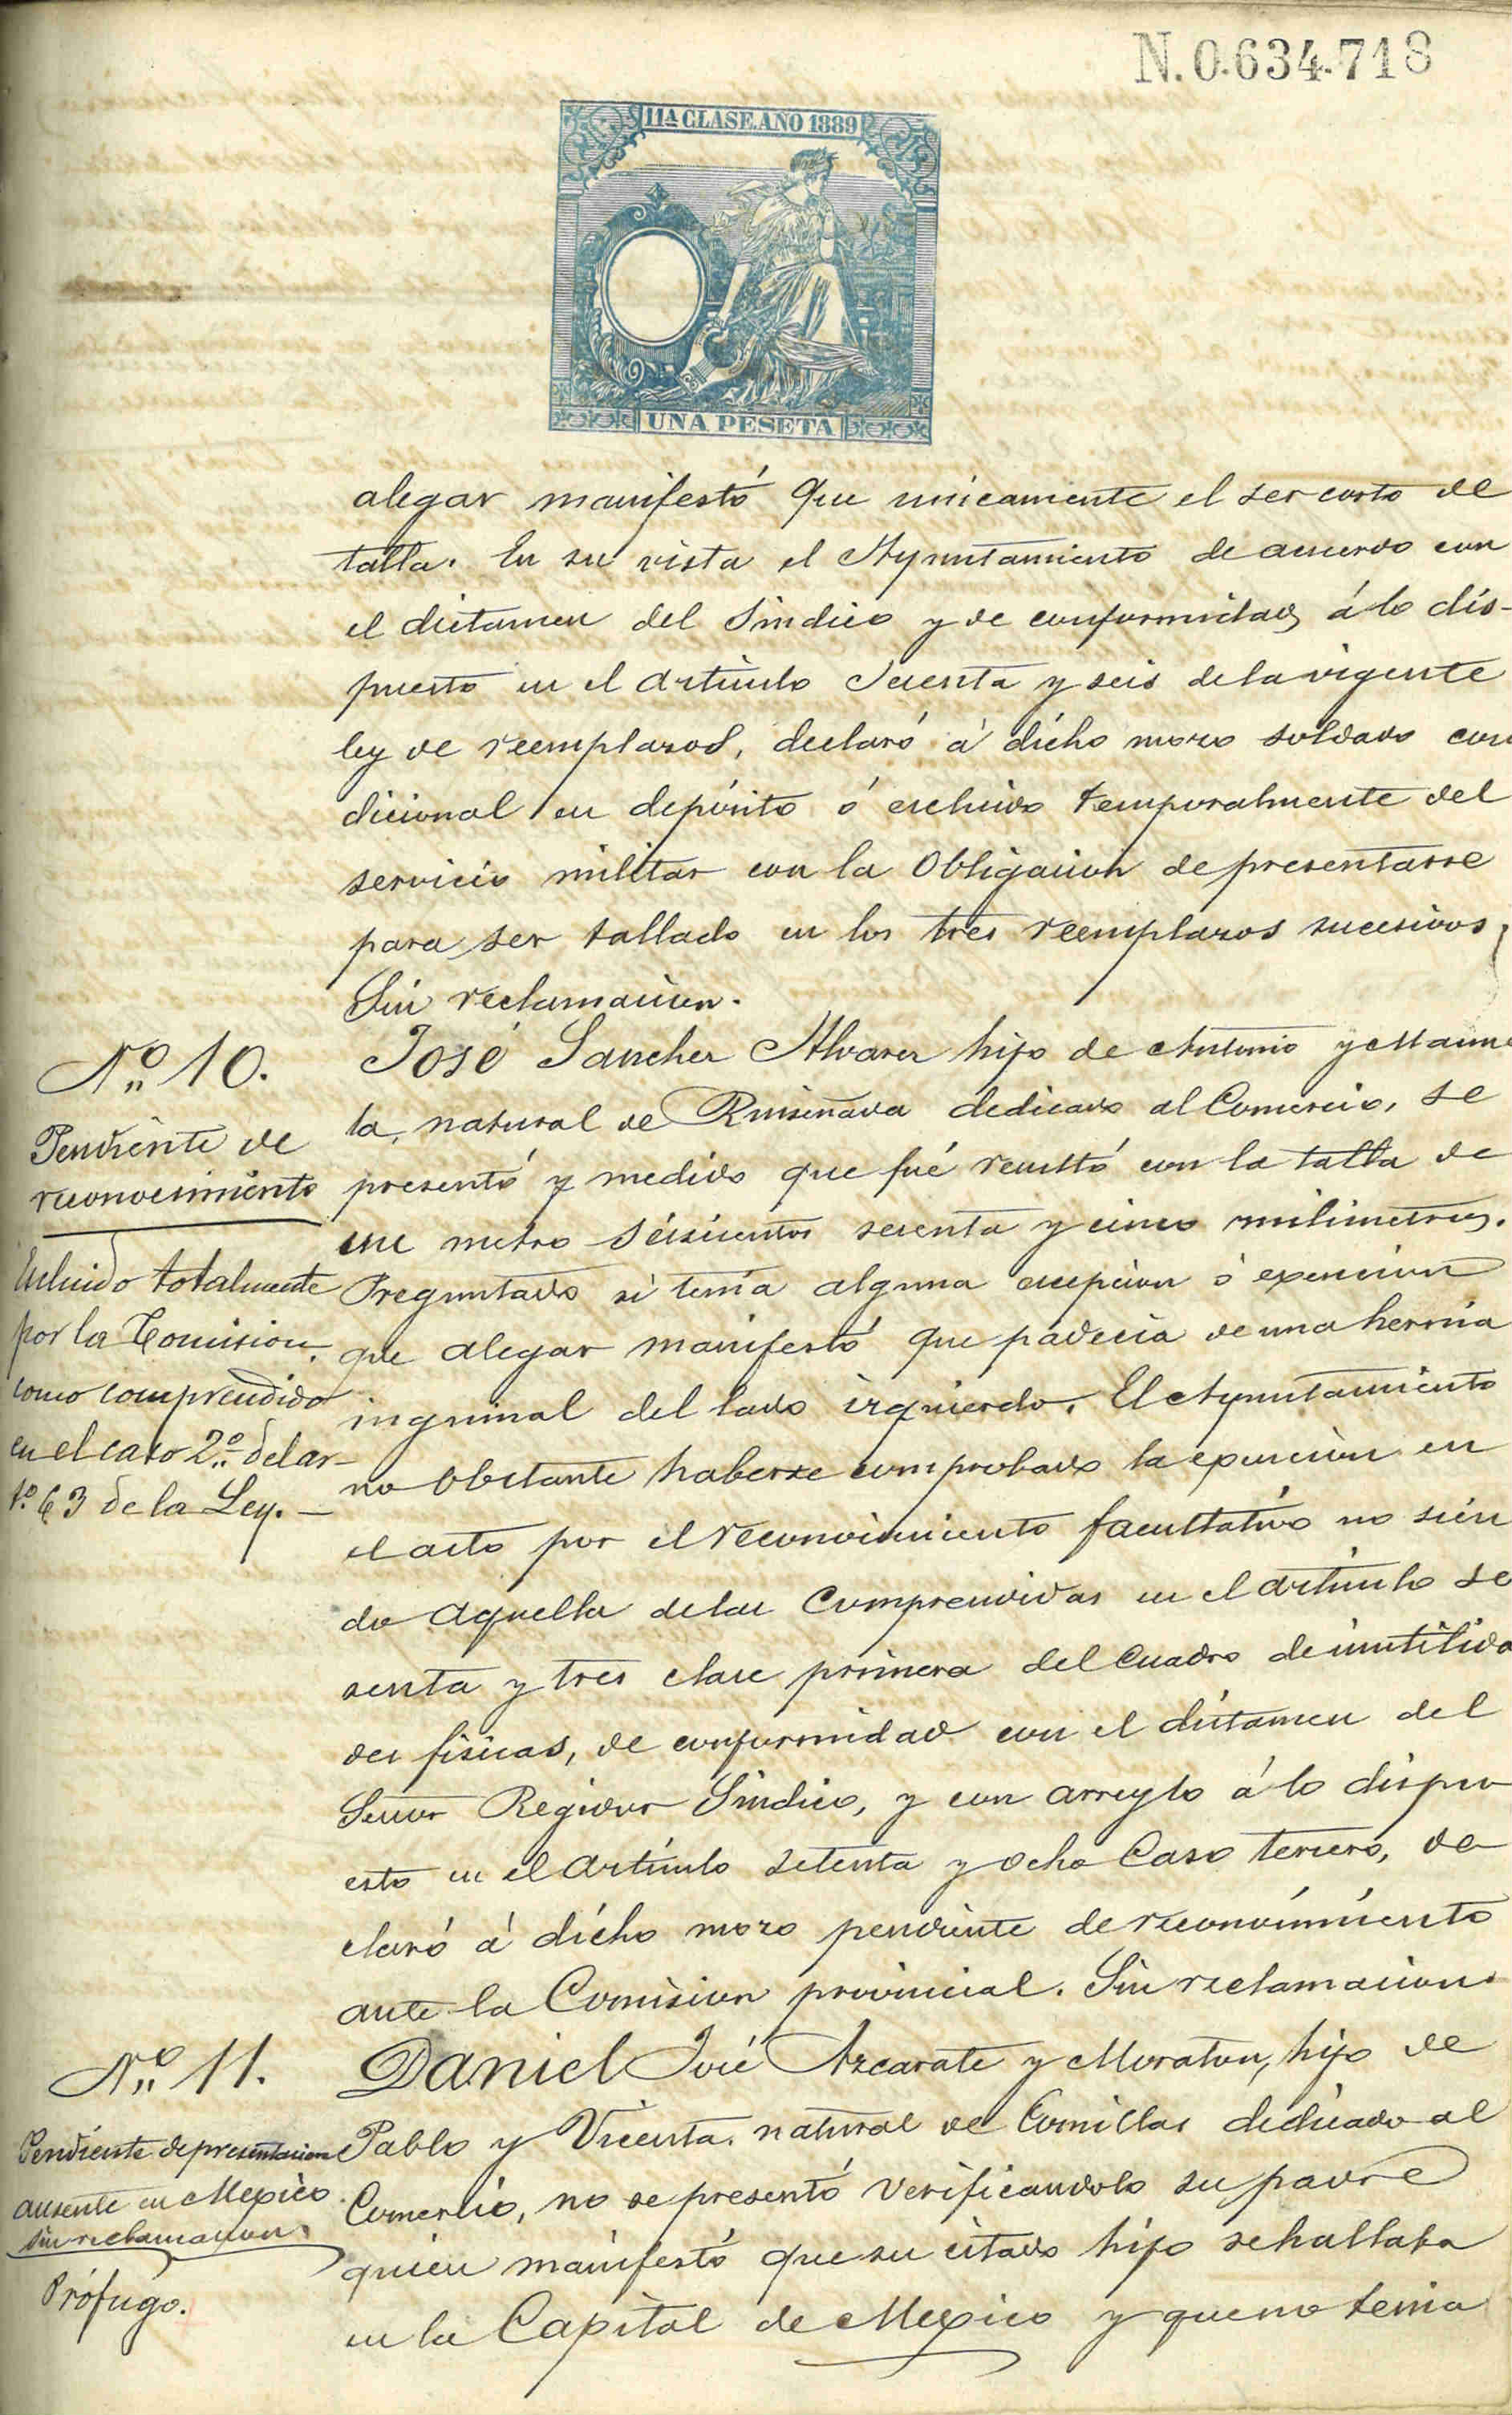 N.0.634.718
11ª CLASE. AÑO 1889
UNA PESETA
alegar manifestó que unicamente el ser corto de
talla. En su vista el Ayuntamiento de acuerdo con
el dictamen del Sindico y de conformidad á lo dis-
puesto en el articulo sesenta y seis de la vigente
ley de reemplazos, declaró á dicho mozo soldado con
dicional en depósito ó escluido temporalmente del
servicio militar con la obligacion de presentarse
para ser tallado en los tres reemplazos sucesivos,
Sin reclamacion.
Nº 10.
Pendiente de
reconocimiento
Excluido totalmente
por la Comision,
como comprendido
en el caso 2º del ar-
tº 63 de la Ley. —
José Sanchez Alvarez hijo de Antonio y Manue
la, natural de Ruiseñada dedicado al Comercio, se
presentó y medido que fué resultó con la talla de
un metro seiscientos sesenta y cinco milimetros.
Preguntado si tenía alguna escepcion ó exencion
que alegar manifestó que padecia de una hernia
inguinal del lado izquierdo. El Ayuntamiento
no obstante haberse comprobado la exencion en
el acto por el reconocimiento facultativo no sien
do aquella de las comprendidas en el articulo se
senta y tres clase primera del cuadro de inutilida
des fisicas, de conformidad con el dictamen del
Señor Regidor Sindico, y con arreglo á lo dispu
esto en el articulo setenta y ocho Caso tercero, de
claró á dicho mozo pendiente de reconocimiento
ante la Comision provincial. Sin reclamacion.
Nº 11.
Pendiente de presentacion
ausente en Mexico
sin reclamacion.
Prófugo.
Daniel José Azcarate y Moraton, hijo de
Pablo y Vicenta, natural de Comillas dedicado al
Comercio, no se presentó verificandolo su padre
quien manifestó que su citado hijo se hallaba
en la Capital de Mexico y que no tenia